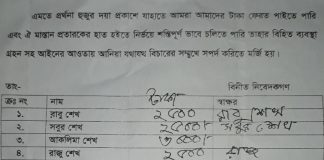 এমতে প্রার্থনা হুজুর দয়া প্রকাশে যাহাতে আমরা আমাদের টাকা ফেরত পাইতে পারি
এবং ঐ মাস্তান প্রতারকের হাত হইতে নির্ভয়ে শান্তিপূর্ণ ভাবে চলিতে পারি তাহার বিহিত ব্যবস্থা
গ্রহন সহ আইনের আওতায় আনিয়া যথাযথ বিচারের সম্মুখে সপর্দ করিতে মর্জি হয়।
তাং- বিনীত নিবেদকগণ
ক্রঃ নং নাম টাকা স্বাক্ষর
১. রাবু শেখ ২৫০০ রাবু শেখ
২. সবুর শেখ ২৫০০/- সবুর শেখ
৩. আকলিমা শেখ
৪. রাজু শেখ ২৫০০